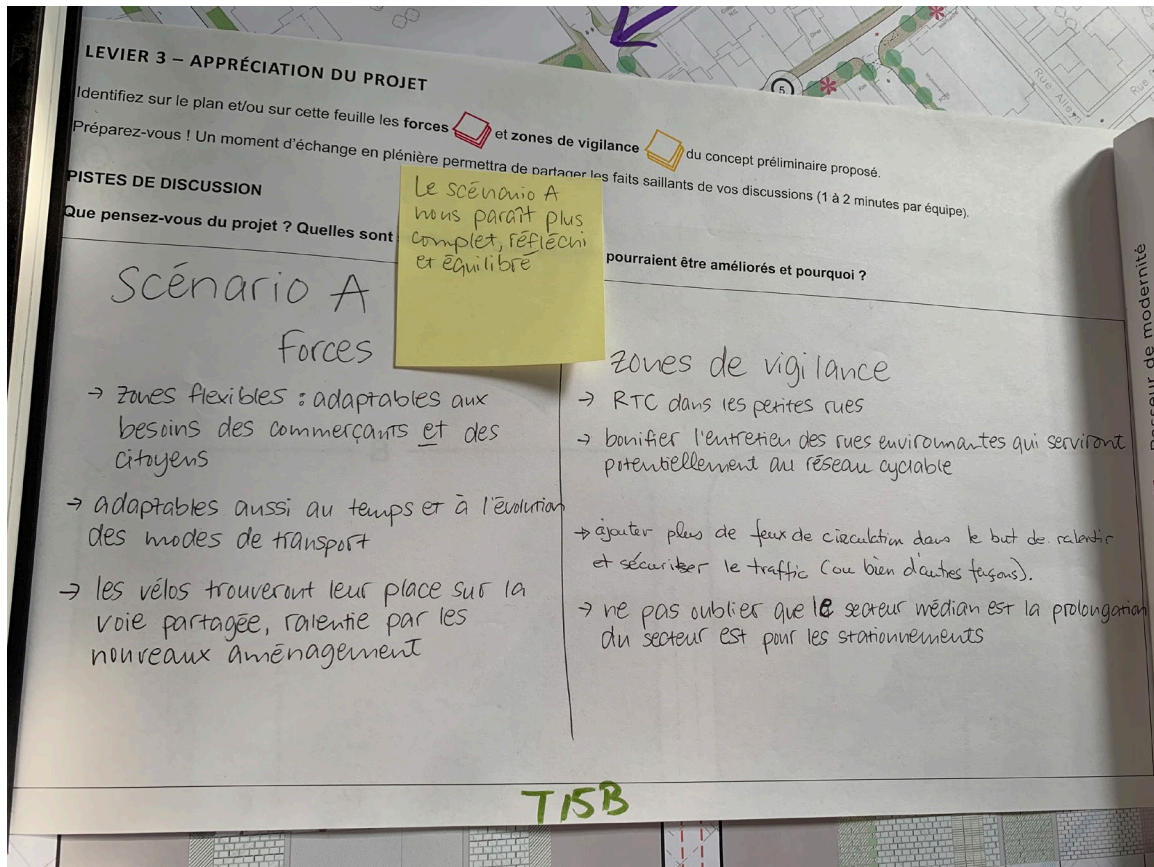 LEVIER 3 – APPRÉCIATION DU PROJET
Identifiez sur le plan et/ou sur cette feuille les forces et zones de vigilance du concept préliminaire proposé.
Préparez-vous ! Un moment d'échange en plénière permettra de partager les faits saillants de vos discussions (1 à 2 minutes par équipe).
PISTES DE DISCUSSION
Que pensez-vous du projet ? Quelles sont pourraient être améliorés et pourquoi ?
Le scénario A
nous paraît plus
complet, réfléchi
et équilibré
Scénario A
Forces
→ zones flexibles : adaptables aux
besoins des commerçants et des
citoyens
→ adaptables aussi au temps et à l'évolution
des modes de transport
→ les vélos trouveront leur place sur la
voie partagée, ralentie par les
nouveaux aménagement
zones de vigilance
→ RTC dans les petites rues
→ bonifier l'entretien des rues environnantes qui serviront
potentiellement au réseau cyclable
→ ajouter plus de feux de circulation dans le but de ralentir
et sécuriser le traffic (ou bien d'autres façons).
→ ne pas oublier que le secteur médian est la prolongation
du secteur est pour les stationnements
T15B
5
Rue
de modernité